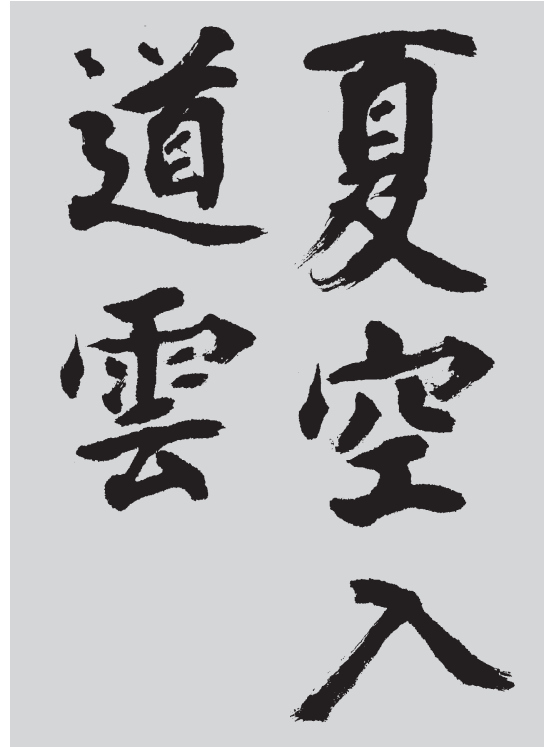 夏空入
道雲